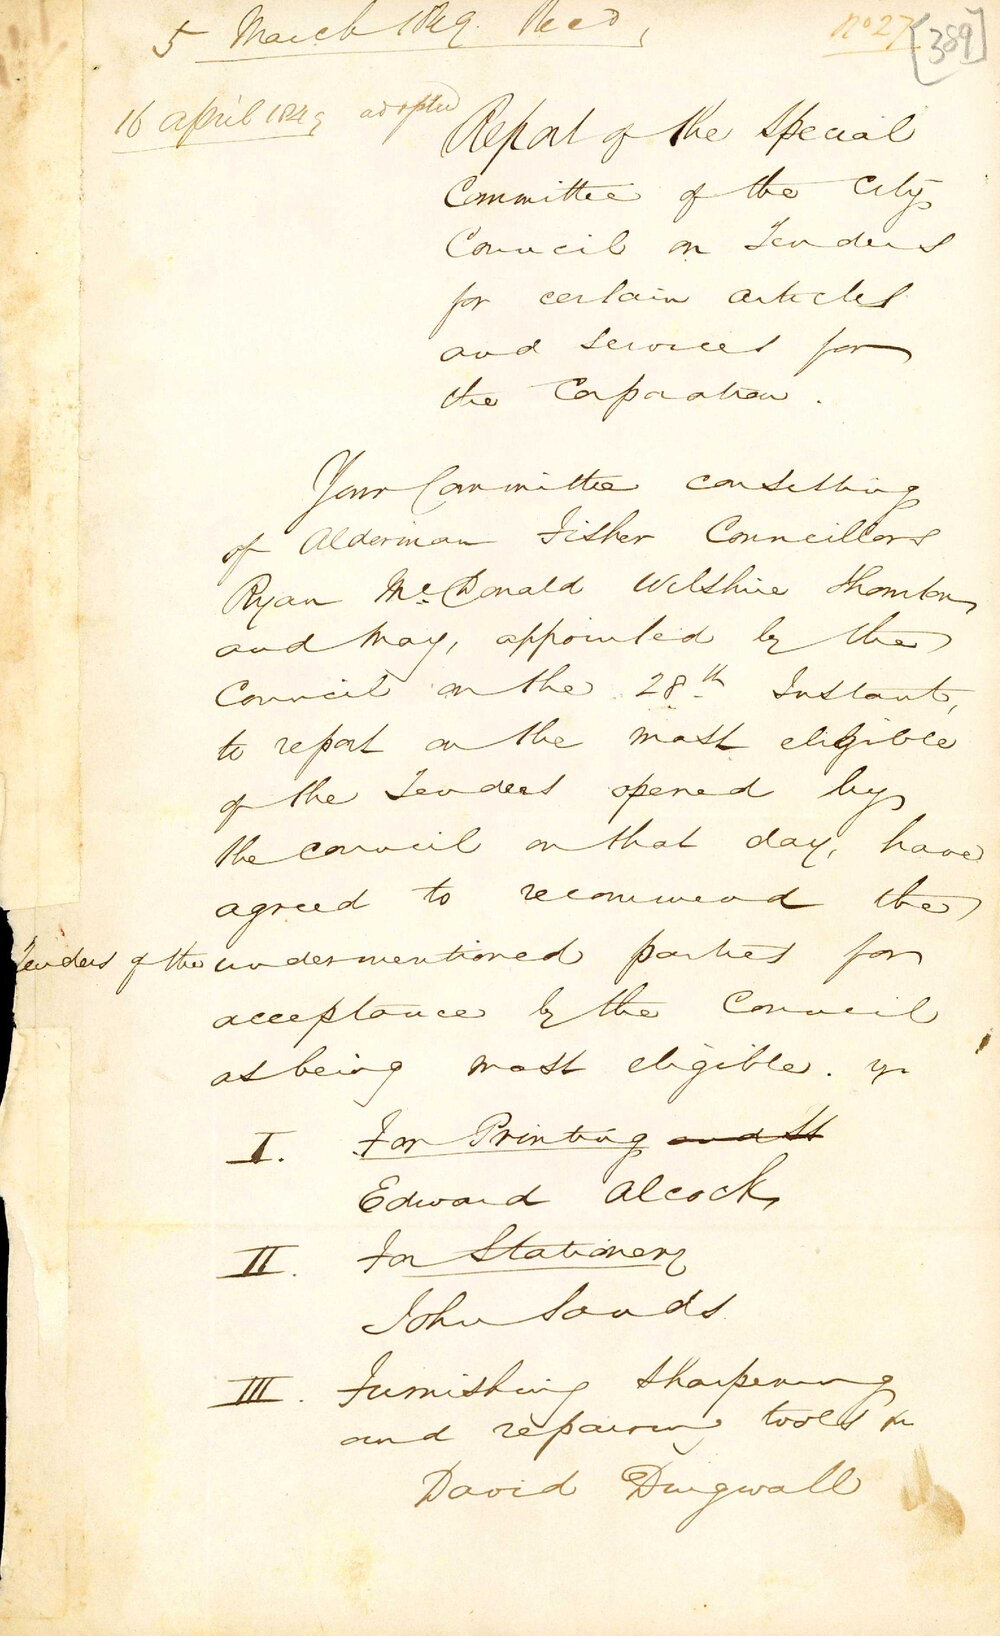 5 March 1849. Recd,
No 27 [389]
16 April 1849 adopted
Report of the Special
Committee of the City
Council on Tenders
for certain articles
and services for
the Corporation.
Your Committee consisting
of Alderman Fisher Councillors
Ryan McDonald Wilshire Thornton
and May, appointed by the
Council on the 28th Instant,
to report on the most eligible
of the Tenders opened by
the council on that day, have
agreed to recommend the
Tenders of the undermentioned parties for
acceptance by the Council
as being most eligible.
I. For Printing and St
Edward Alcock
II. For Stationery
John Sands
III. Furnishing sharpening
and repairing tools
David Dingwall